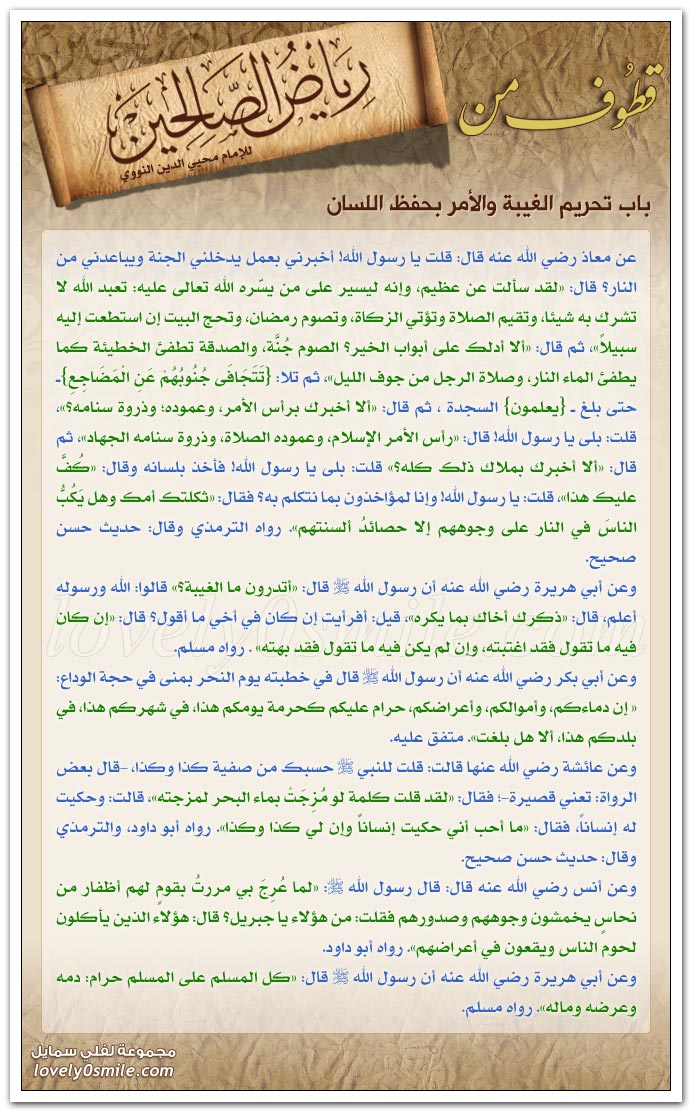 قطوف من
رياض الصالحين
للإمام محيي الدين النووي
باب تحريم الغيبة والأمر بحفظ اللسان
عن معاذ رضي الله عنه قال: قلت يا رسول الله! أخبرني بعمل يدخلني الجنة ويباعدني من
النار؟ قال: «لقد سألت عن عظيم، وإنه ليسير على من يسّره الله تعالى عليه: تعبد الله لا
تشرك به شيئا، وتقيم الصلاة وتؤتي الزكاة، وتصوم رمضان، وتحج البيت إن استطعت إليه
سبيلاً»، ثم قال: «ألا أدلك على أبواب الخير؟ الصوم جُنَّة، والصدقة تطفئ الخطيئة كما
يطفئ الماء النار، وصلاة الرجل من جوف الليل»، ثم تلا: {تَتَجَافَى جُنُوبُهُمْ عَنِ الْمَضَاجِعِ}ـ
حتى بلغ ـ {يعلمون} السجدة ، ثم قال: «ألا أخبرك برأس الأمر، وعموده؛ وذروة سنامه؟»،
قلت: بلى يا رسول الله! قال: «رأس الأمر الإسلام، وعموده الصلاة، وذروة سنامه الجهاد»، ثم
قال: «ألا أخبرك بملاك ذلك كله؟» قلت: بلى يا رسول الله! فأخذ بلسانه وقال: «كُفَّ
عليك هذا»، قلت: يا رسول الله! وإنا لمؤاخذون بما نتكلم به؟ فقال: «ثكلتك أمك وهل يَكُبُّ
الناسَ في النار على وجوههم إلا حصائدُ ألسنتهم». رواه الترمذي وقال: حديث حسن
صحيح.
وعن أبي هريرة رضي الله عنه أن رسول الله ﷺ قال: «أتدرون ما الغيبة؟» قالوا: الله ورسوله
أعلم، قال: «ذكرك أخاك بما يكره»، قيل: أفرأيت إن كان في أخي ما أقول؟ قال: «إن كان
فيه ما تقول فقد اغتبته، وإن لم يكن فيه ما تقول فقد بهته» . رواه مسلم.
وعن أبي بكر رضي الله عنه أن رسول الله ﷺ قال في خطبته يوم النحر بمنى في حجة الوداع:
« إن دماءكم، وأموالكم، وأعراضكم، حرام عليكم كحرمة يومكم هذا، في شهركم هذا، في
بلدكم هذا، ألا هل بلغت». متفق عليه.
وعن عائشة رضي الله عنها قالت: قلت للنبي ﷺ حسبك من صفية كذا وكذا، –قال بعض
الرواة: تعني قصيرة–؛ فقال: «لقد قلت كلمة لو مُزِجَتْ بماء البحر لمزجته»، قالت: وحكيت
له إنساناً، فقال: «ما أحب أني حكيت إنساناً وإن لي كذا وكذا». رواه أبو داود، والترمذي
وقال: حديث حسن صحيح.
وعن أنس رضي الله عنه قال: قال رسول الله ﷺ: «لما عُرِجَ بي مررتُ بقومٍ لهم أظفار من
نحاسٍ يخمشون وجوههم وصدورهم فقلت: من هؤلاء يا جبريل؟ قال: هؤلاء الذين يأكلون
لحوم الناس ويقعون في أعراضهم». رواه أبو داود.
وعن أبي هريرة رضي الله عنه أن رسول الله ﷺ قال: «كل المسلم على المسلم حرام: دمه
وعرضه وماله». رواه مسلم.
lovely0smile.com
مجموعة لفلي سمايل
lovely0smile.com